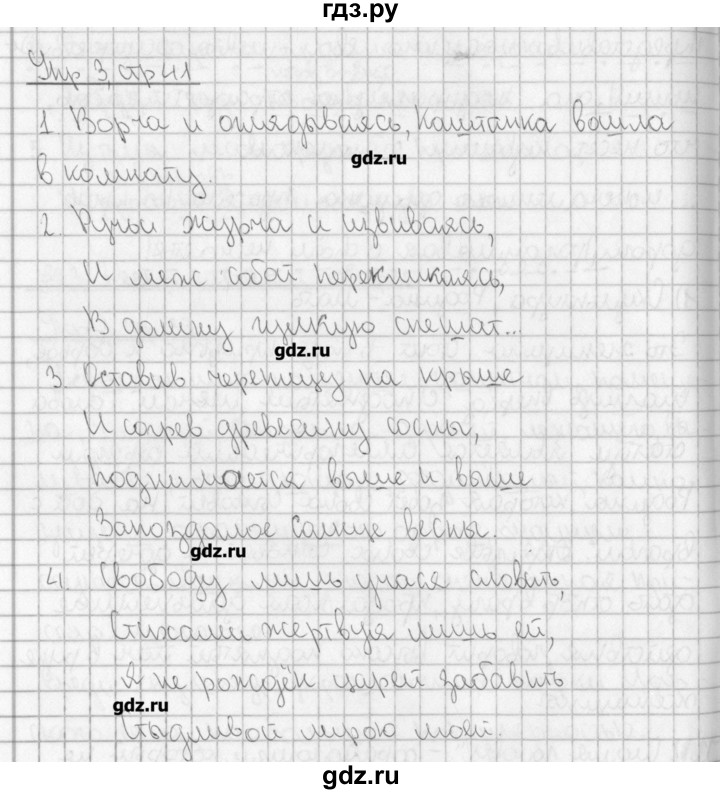 гдз.ру
Упр 3, стр 41
1. Ворча и оглядываясь, Каштанка вошла
gdz.ru
в комнату.
2. Ручьи журча и извиваясь,
И меж собой перекликаясь,
В долину гулкую спешат...
gdz.ru
3. Оставив черепицу на крыше
И согрев древесину сосны,
Поднимается выше и выше
Запоздалое солнце весны.
gdz.ru
4. Свободу лишь учася славить,
Стихами жертвуя лишь ей,
Я не рождён царей забавить
gdz.ru
Стыдливой лирою моей.
gdz.ru